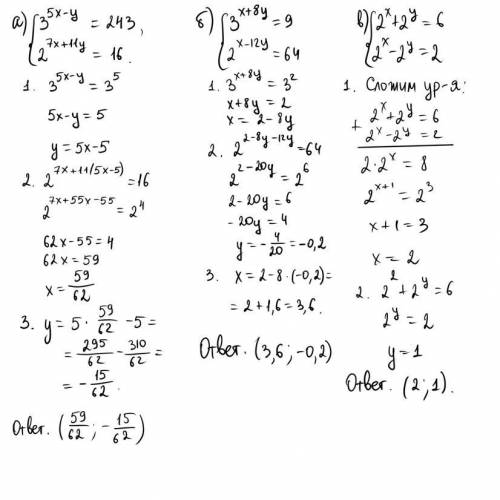 а) { 3^{5x-y} = 243,
2^{7x+11y} = 16.
1. 3^{5x-y} = 3^5
5x-y = 5
y = 5x-5
2. 2^{7x+11(5x-5)} = 16
2^{7x+55x-55} = 2^4
62x-55 = 4
62x = 59
x = 59/62
3. y = 5 · 59/62 - 5 =
= 295/62 - 310/62 =
= - 15/62.
Ответ. (59/62 ; - 15/62)
б) { 3^{x+8y} = 9
2^{x-12y} = 64
1. 3^{x+8y} = 3^2
x+8y = 2
x = 2-8y
2. 2^{2-8y-12y} = 64
2^{2-20y} = 2^6
2-20y = 6
-20y = 4
y = - 4/20 = -0,2
3. x = 2-8·(-0,2) =
= 2+1,6 = 3,6.
Ответ. (3,6 ; -0,2)
в) { 2^x + 2^y = 6
2^x - 2^y = 2
1. Сложим ур-я:
+ 2^x + 2^y = 6
2^x - 2^y = 2
2·2^x = 8
2^{x+1} = 2^3
x+1 = 3
x = 2
2. 2^2 + 2^y = 6
2^y = 2
y = 1
Ответ. (2 ; 1).